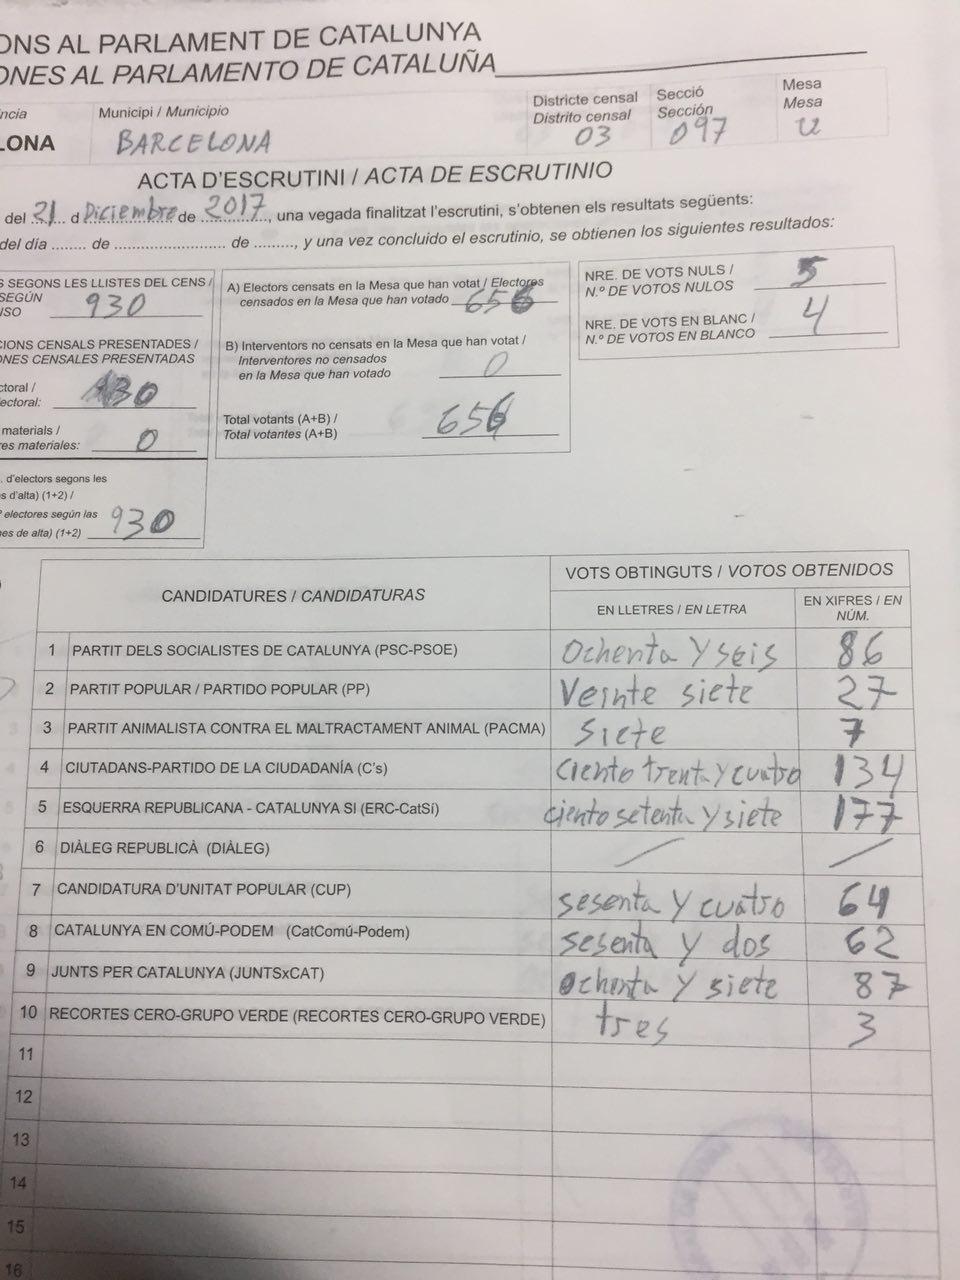 ONS AL PARLAMENT DE CATALUNYA
ONES AL PARLAMENTO DE CATALUÑA
ncia Municipi / Municipio Districte censal Secció Mesa
Distrito censal Sección Mesa
LONA BARCELONA 03 097 U
ACTA D'ESCRUTINI / ACTA DE ESCRUTINIO
del 21 d Diciembre de 2017, una vegada finalitzat l'escrutini, s'obtenen els resultats següents:
del día ........ de .......................... de ........., y una vez concluido el escrutinio, se obtienen los siguientes resultados:
S SEGONS LES LLISTES DEL CENS /
SEGÚN
NSO 930
CIONS CENSALS PRESENTADES /
ONES CENSALES PRESENTADAS
ctoral /
ectoral: 130
materials /
res materiales: 0
. d'electors segons les
s d'alta) (1+2) /
º electores según las
nes de alta) (1+2) 930
A) Electors censats en la Mesa que han votat / Electores
censados en la Mesa que han votado 656
B) Interventors no censats en la Mesa que han votat /
Interventores no censados
en la Mesa que han votado 0
Total votants (A+B) /
Total votantes (A+B) 656
NRE. DE VOTS NULS /
N.º DE VOTOS NULOS 5
NRE. DE VOTS EN BLANC /
N.º DE VOTOS EN BLANCO 4
CANDIDATURES / CANDIDATURAS VOTS OBTINGUTS / VOTOS OBTENIDOS
EN LLETRES / EN LETRA EN XIFRES / EN NÚM.
1 PARTIT DELS SOCIALISTES DE CATALUNYA (PSC-PSOE) Ochenta Y seis 86
2 PARTIT POPULAR / PARTIDO POPULAR (PP) Veinte siete 27
3 PARTIT ANIMALISTA CONTRA EL MALTRACTAMENT ANIMAL (PACMA) Siete 7
4 CIUTADANS-PARTIDO DE LA CIUDADANÍA (C's) ciento trenta y cuatro 134
5 ESQUERRA REPUBLICANA - CATALUNYA SI (ERC-CatSí) ciento setenta y siete 177
6 DIÀLEG REPUBLICÀ (DIÀLEG) / /
7 CANDIDATURA D'UNITAT POPULAR (CUP) sesenta y cuatro 64
8 CATALUNYA EN COMÚ-PODEM (CatComú-Podem) sesenta y dos 62
9 JUNTS PER CATALUNYA (JUNTSxCAT) ochenta y siete 87
10 RECORTES CERO-GRUPO VERDE (RECORTES CERO-GRUPO VERDE) tres 3
11
12
13
14
15
16